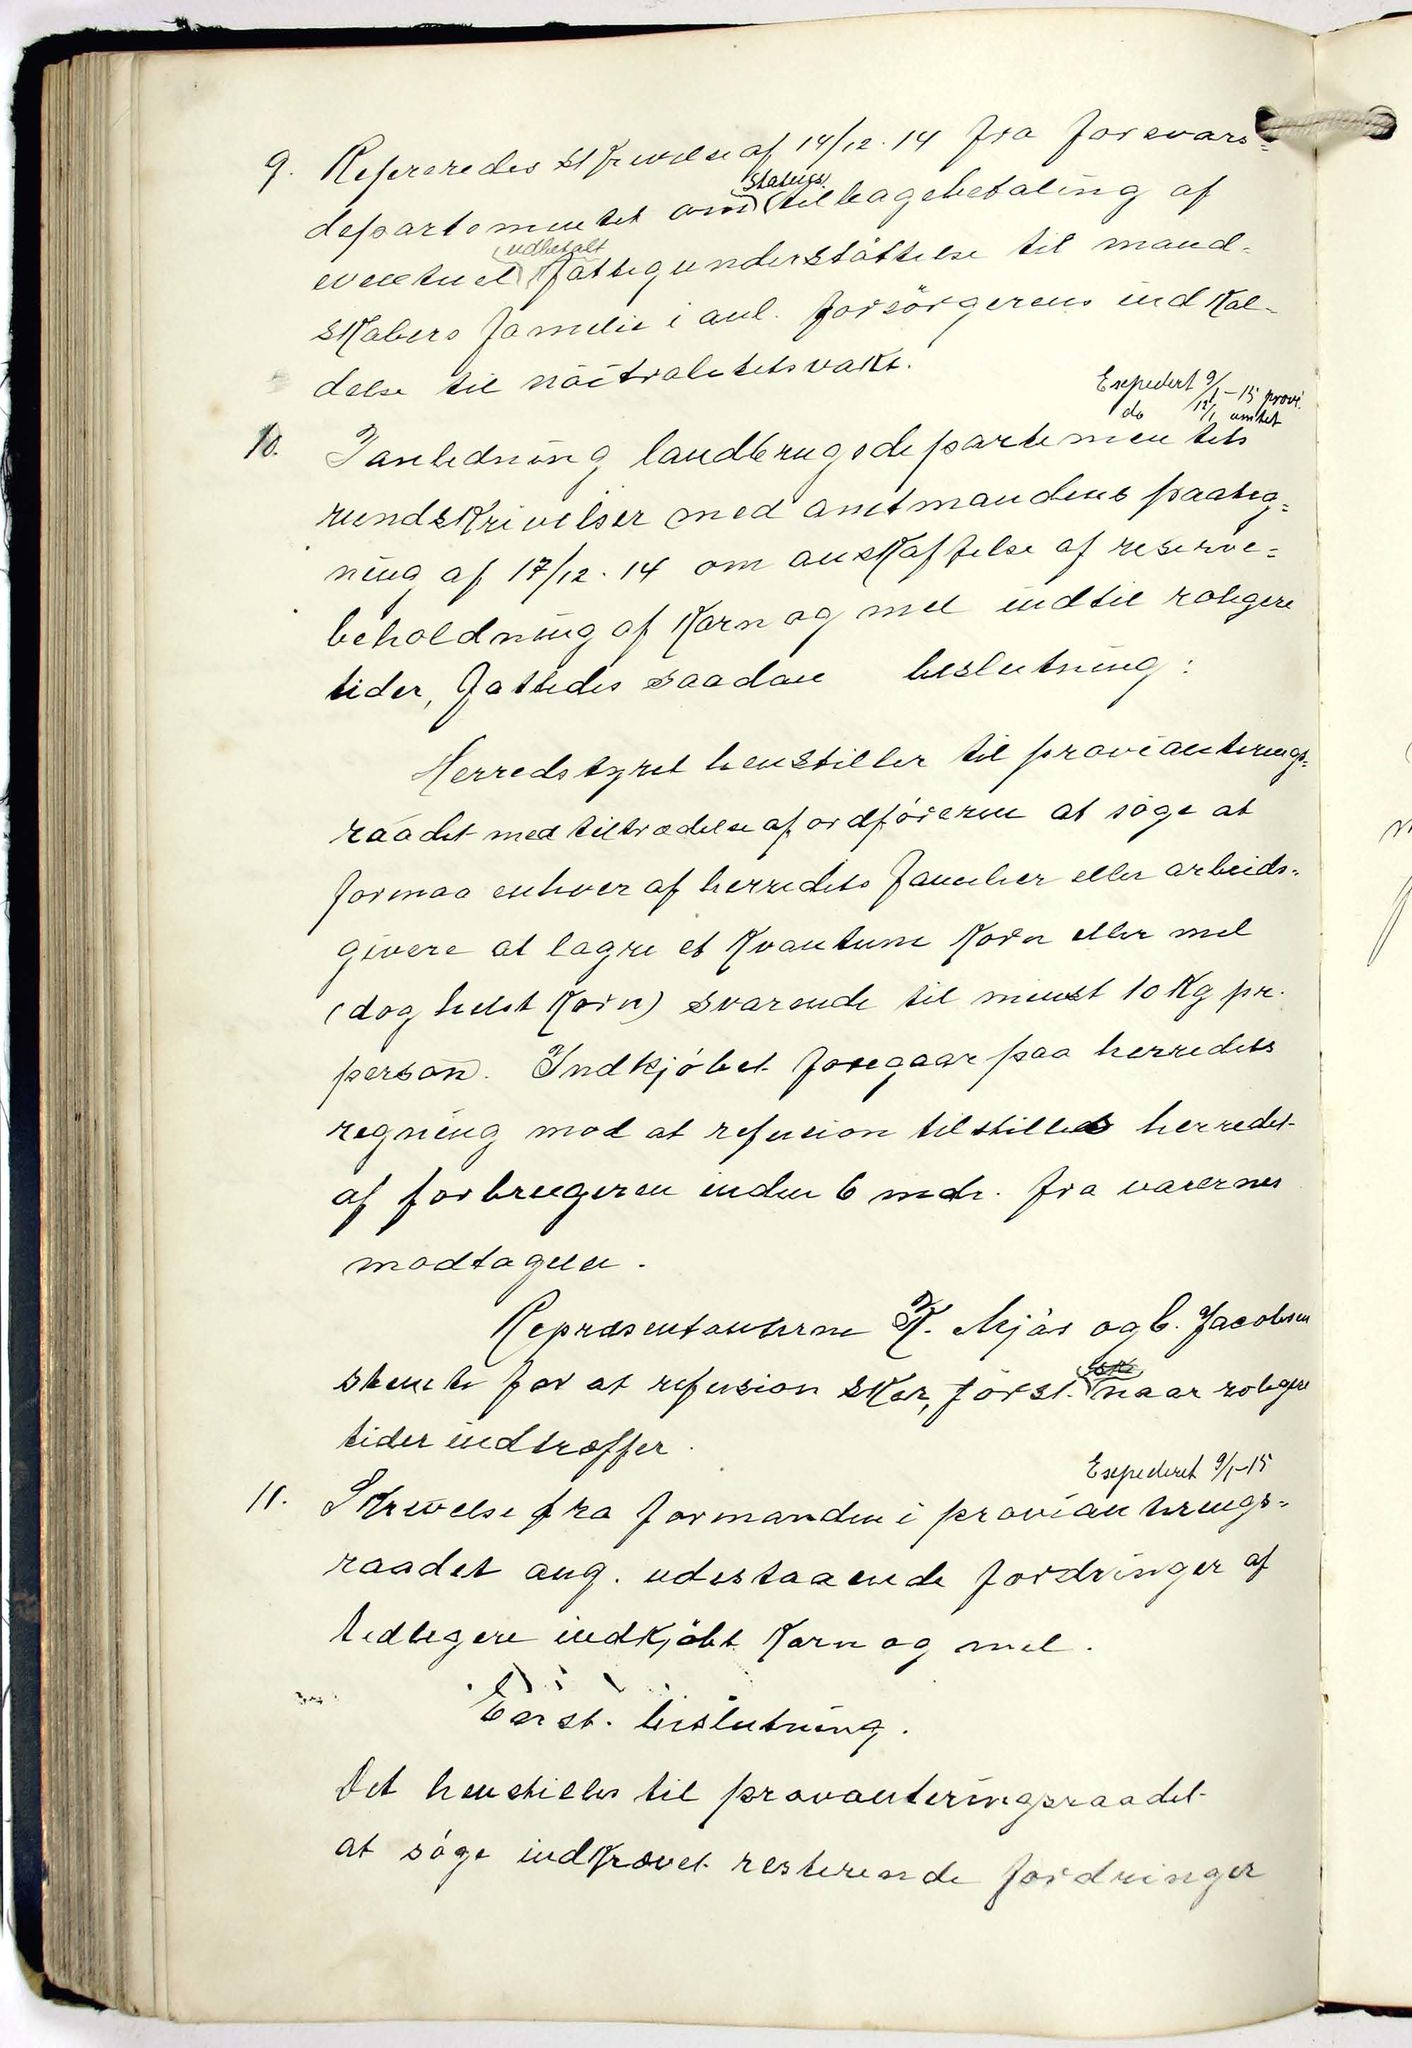 9. Refereredes skrivelse af 14/12.14 fra forsvars=
departementet om statens tilbagebetaling af
eventuel udbetalt fattigunderstøttelse til mand=
skabers familie i anl. forsörgerens indkal-
delse til nöitralitetsvakt.
Expedert 9/1-15 provi.
do 12/1 amtet
10. I anledning landbrugsdepartementets
rundskrivelser med amtmandens paateg=
ning af 17/12.14 om anskaffelse af reserve=
beholdning af korn og mel indtil roligere
tider, fattedes saadan beslutning:
Herredstyret henstiller til provianterings=
raadet med tiltrædelse af ordføreren at söge at
formaa enhver af herredets familier eller arbeids=
givere at lagre et kvantum korn eller mel
(dog helst korn) svarende til minst 10 kg pr.
person. Indkjöbet foregaar paa herredets
regning mod at refusion tilstilles herredet
af forbrugeren inden 6 mdr. fra varernes
modtagelse.
Repræsentanterne K. Mjås og C. Jacobsen
stemte for at refusion sker, först naar roligere
tider indtræffer.
Expederet 9/1-15
11. Skrivelse fra formanden i provianterings=
raadet ang. udestaaende fordringer af
tidligere indkjöbt korn og mel.
Eenst. beslutning.
Det henstilles til provanteringsraadet
at söge indkrævet resterende fordringer